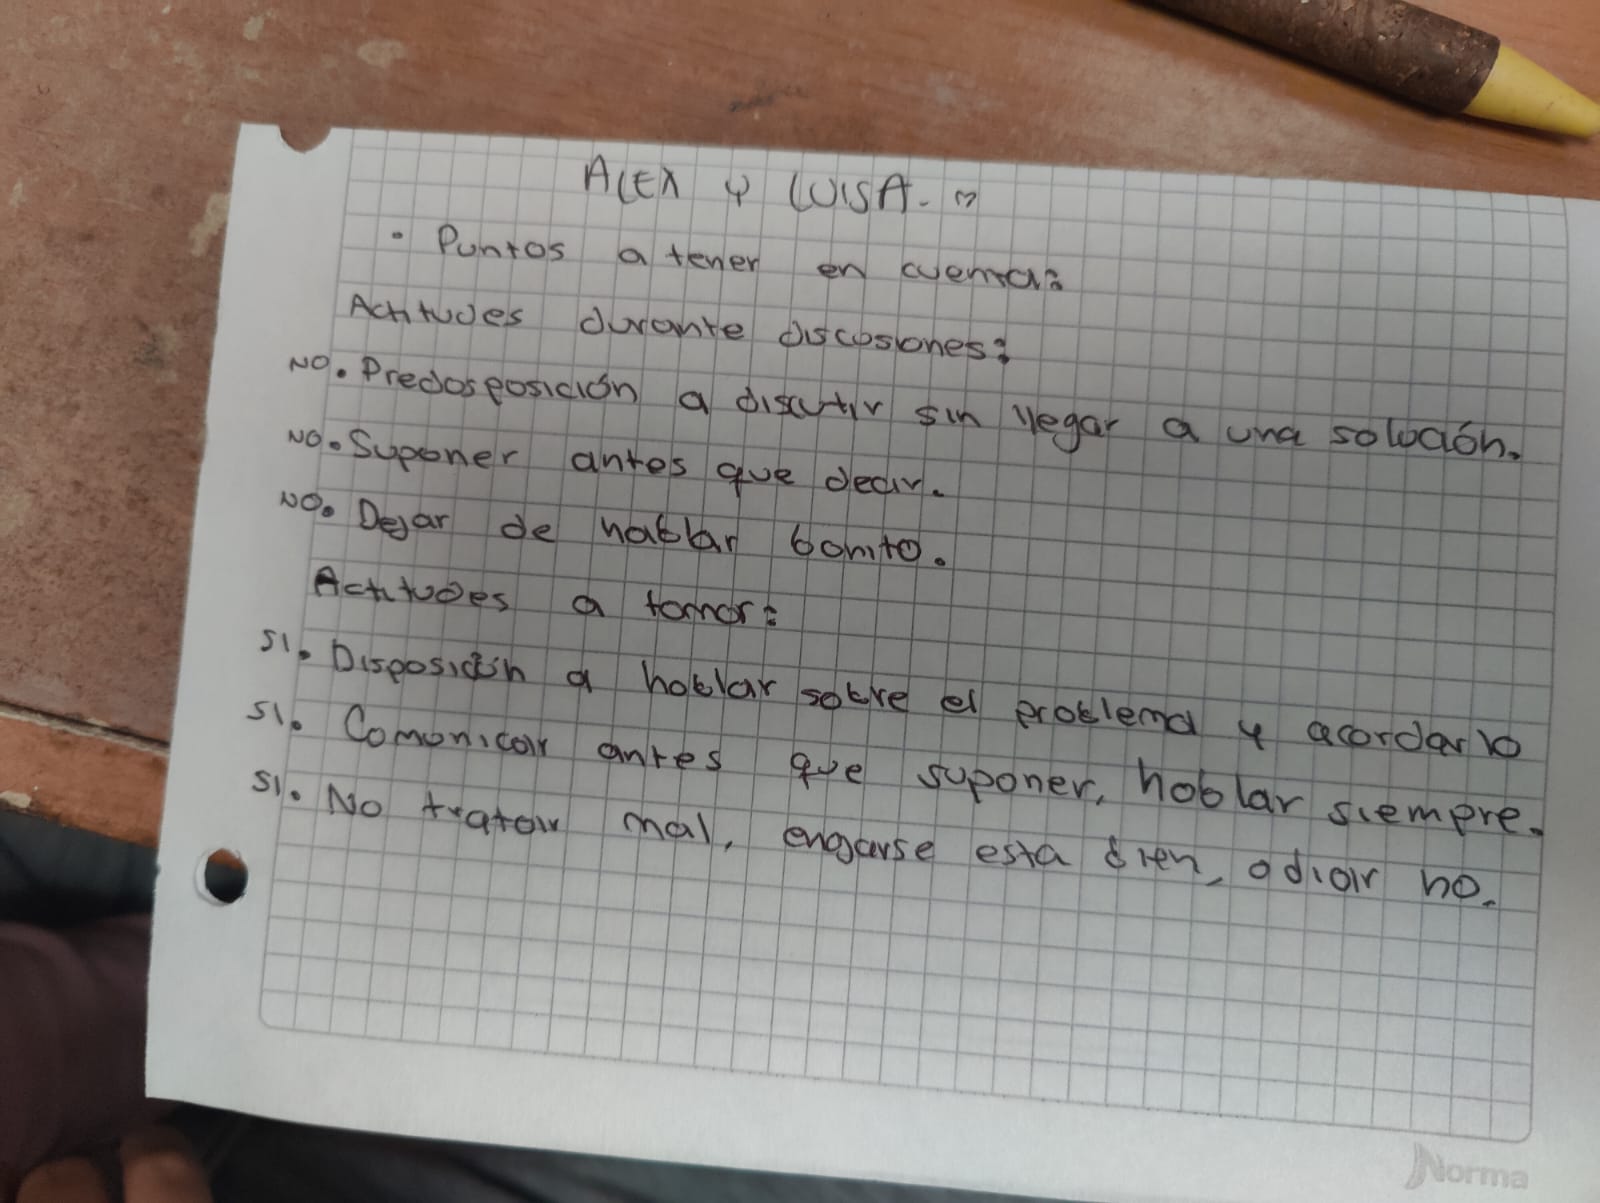 ALEX Y LUISA. ♡
• Puntos a tener en cuenta:
Actitudes durante discusiones:
NO. Predosposición a discutir sin llegar a una solución.
NO. Suponer antes que decir.
NO. Dejar de hablar bonito.
Actitudes a tomar:
SI. Disposición a hablar sobre el problema y acordarlo
SI. Comunicar antes que suponer, hablar siempre.
SI. No tratar mal, enojarse esta bien, odiar no.
Norma